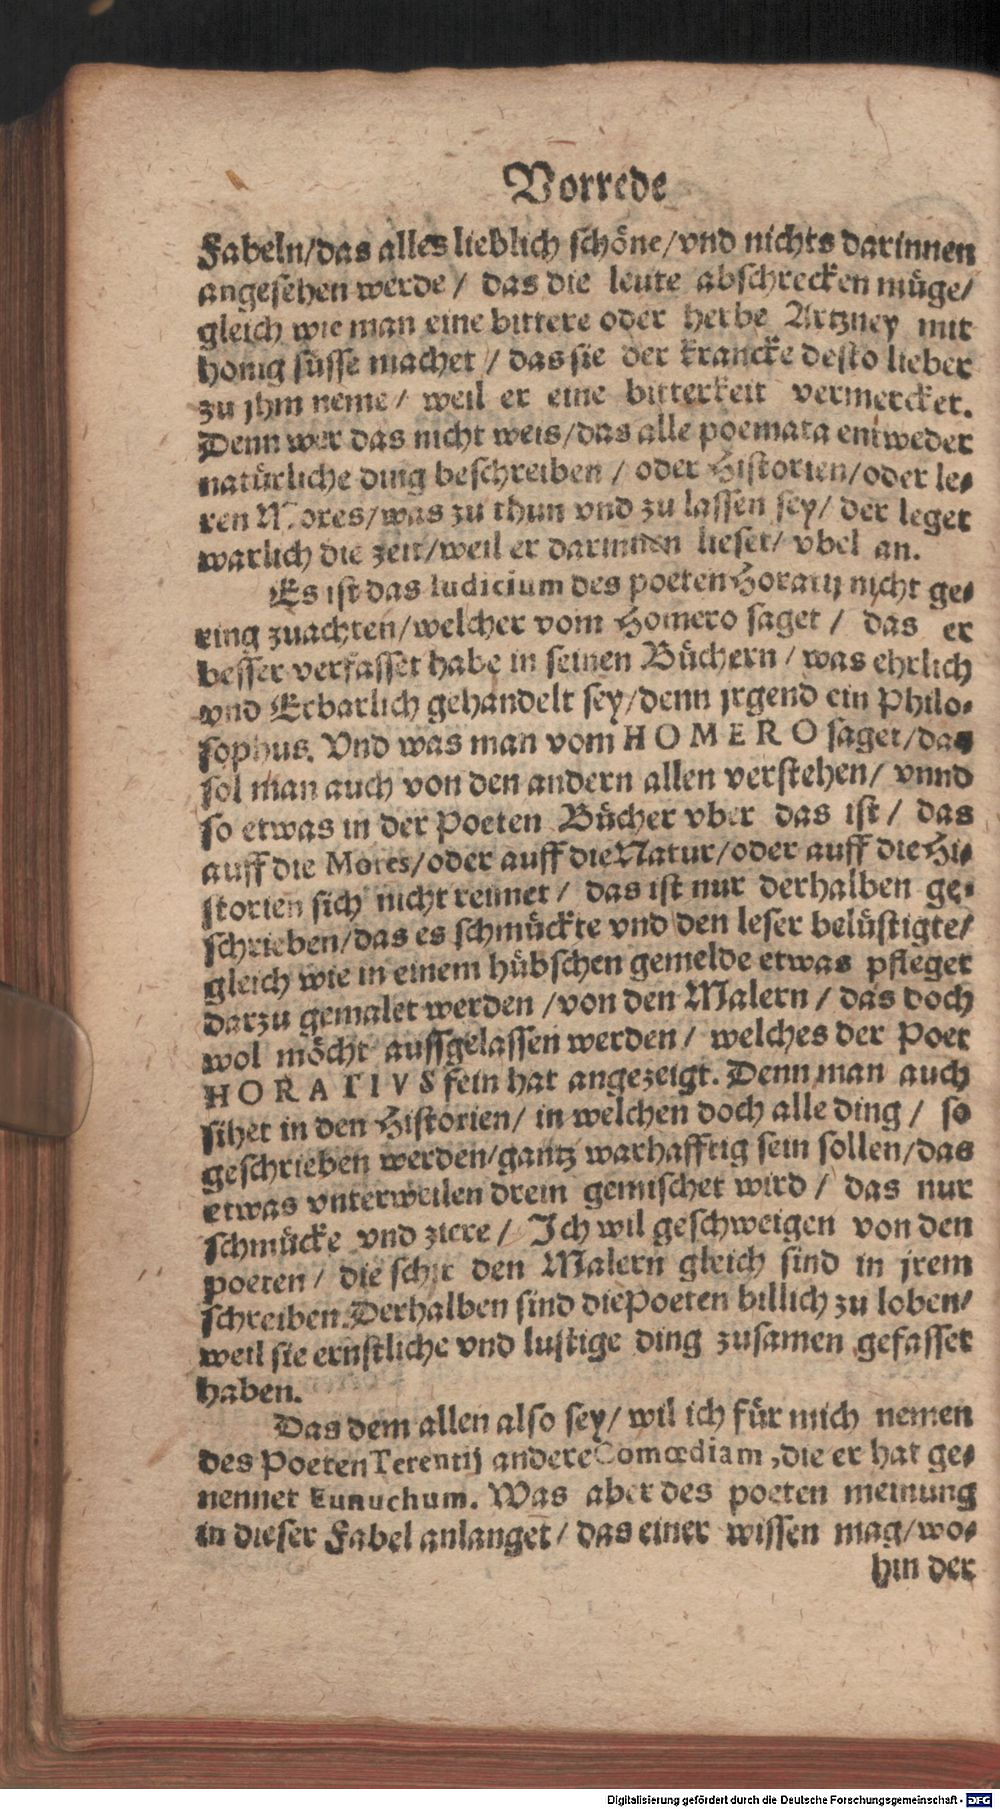 Vorrede
Fabeln/das alles lieblich schöne/vnd nichts darinnen
angesehen werde / das die leute abschrecken müge/
gleich wie man eine bittere oder herbe Artzney mit
honig süsse machet / das sie der krancke desto lieber
zu jhm neme / weil er eine bitterkeit vermercket.
Denn wer das nicht weis/das alle poemata entweder
natürliche ding beschreiben / oder Historien/oder le-
ren Mores/was zu thun vnd zu lassen sey/ der leget
warlich die zeit/weil er darinnen lieset/ vbel an.
Es ist das Iudicium des poeten Horatij nicht ge-
ring zuachten/welcher vom Homero saget / das er
besser verfasset habe in seinen Büchern / was ehrlich
vnd Erbarlich gehandelt sey/denn jrgend ein Philo-
sophus. Vnd was man vom HOMERO saget/das
sol man auch von den andern allen verstehen/ vnnd
so etwas in der Poeten Bücher vber das ist / das
auff die Mores/oder auff die Natur/oder auff die Hi-
storien sich nicht reimet / das ist nur derhalben ge-
schrieben/das es schmückte vnd den leser belüstigte/
gleich wie in einem hübschen gemelde etwas pfleget
darzu gemalet werden /von den Malern / das doch
wol möcht aussgelassen werden / welches der Poet
HORATIVS fein hat angezeigt. Denn man auch
sihet in den Historien/ in welchen doch alle ding / so
geschrieben werden/gantz warhafftig sein sollen/das
etwas vnterweilen drein gemischet wird / das nur
schmücke vnd ziere / Ich wil geschweigen von den
poeten / die schir den Malern gleich sind in jrem
schreiben. Derhalben sind die Poeten billich zu loben/
weil sie ernstliche vnd lustige ding zusamen gefasset
haben.
Das dem allen also sey/ wil ich für mich nemen
des Poeten Terentij andere Comœdiam, die er hat ge-
nennet Eunuchum. Was aber des poeten meinung
in dieser Fabel anlanget / das einer wissen mag/wo-
hin der
Digitalisierung gefördert durch die Deutsche Forschungsgemeinschaft - DFG